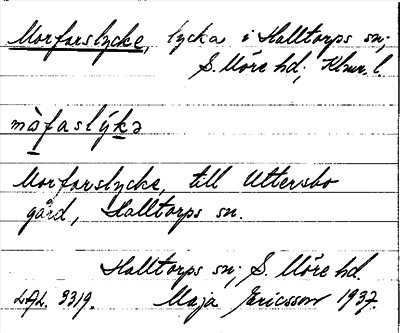 Morfarslycke, lycka i Halltorps sn;
S. Möre hd; Klmr. l.
mòfaslýkə
Morfarslycke, till Uttersbo
gård, Halltorps sn.
Halltorps sn; S. Möre hd.
3319. Maja Ericsson 1937.